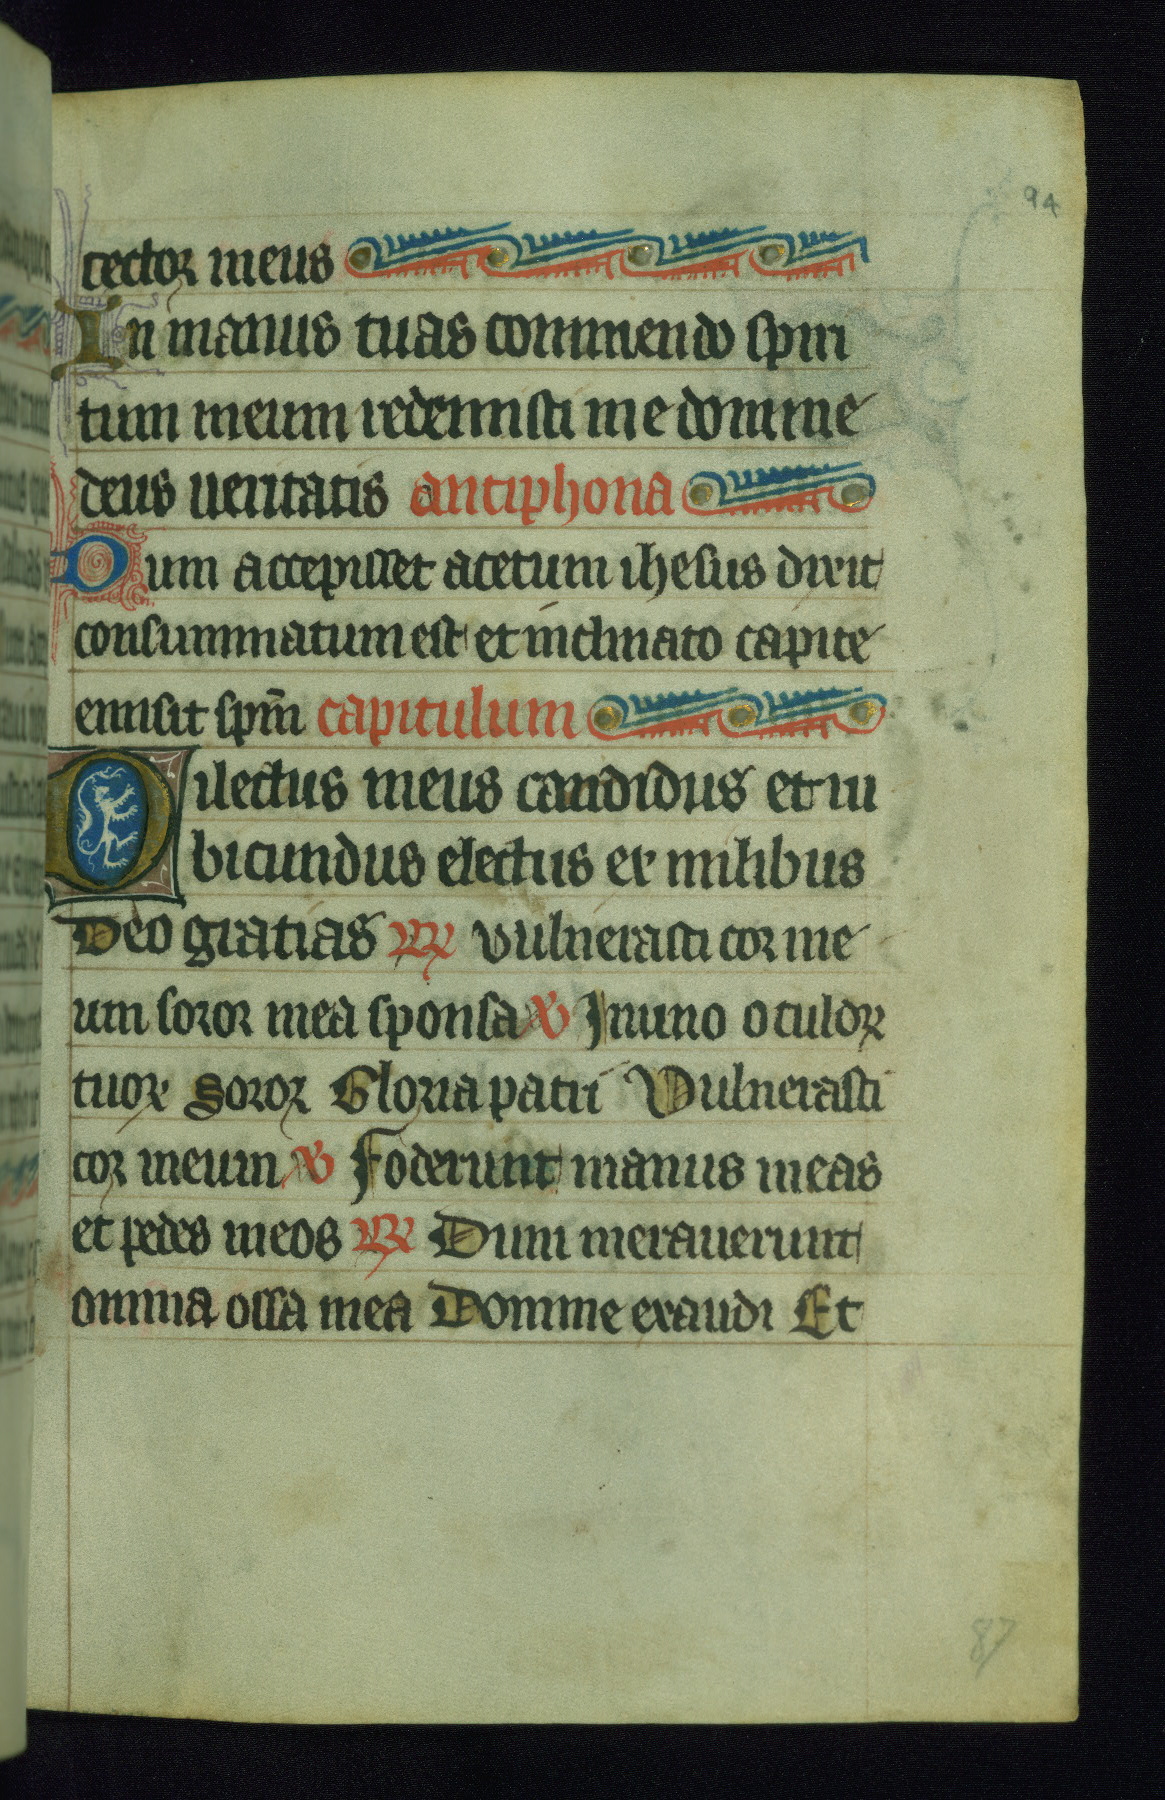 94
tector meus
In manus tuas commendo spiri
tum meum redemisti me domine
deus veritatis antiphona
Dum accepisset acetum ihesus dixit
consummatum est et inclinato capite
emisit spm̄ capitulum
Dilectus meus candidus et ru
bicundus electus ex milibus
Deo gratias R vulnerasti cor me
um soror mea sponsa V In uno oculoꝝ
tuoꝝ Soror Gloria patri Vulnerasti
cor meum V Foderunt manus meas
et pedes meos R Dinumerauerunt
omnia ossa mea Domine exaudi Et
87